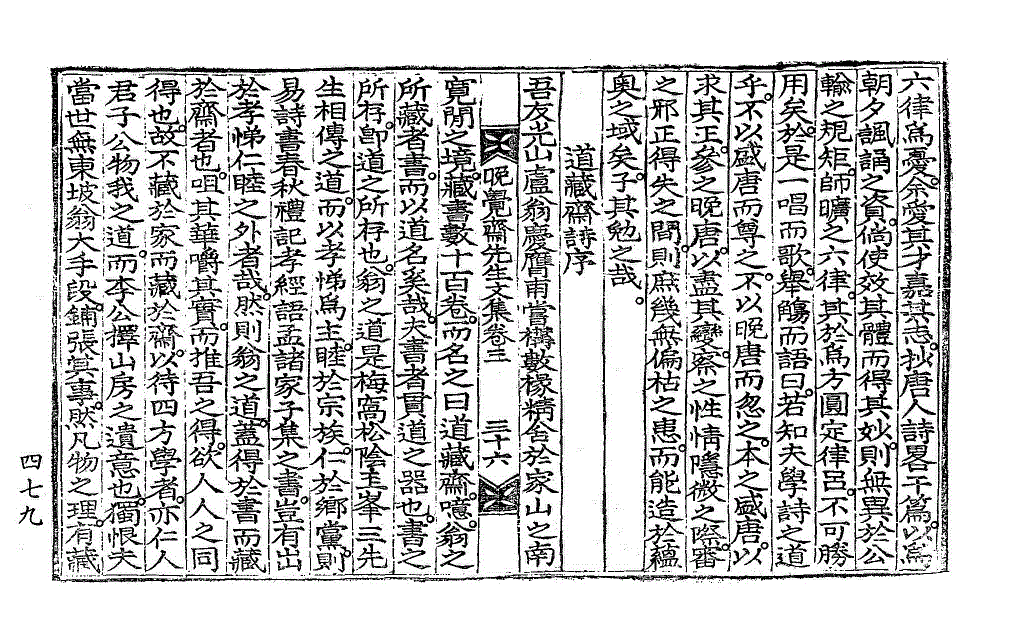 六律爲憂余愛其才嘉其志抄唐人詩畧干篇以爲
朝夕諷誦之資倘使效其體而得其妙則無異於公
輸之規矩師曠之六律其於爲方圓定律呂不可勝
用矣於是一唱而歌擧觴而語曰若知夫學詩之道
乎不以盛唐而尊之不以晚唐而忽之本之盛唐以
求其正參之晚唐以盡其變察之性情隱微之際審
之邪正得失之間則庶幾無偏枯之患而能造於蘊
奧之域矣子其勉之哉
道藏齋詩序
吾友光山盧翁慶膺甫嘗構數椽精舍於家山之南
晚覺齋先生文集卷三 三十六
寬閒之境藏書數十百卷而名之曰道藏齋噫翁之
所藏者書而以道名奚哉夫書者貫道之器也書之
所存卽道之所存也翁之道是梅窩松陰玉峯三先
生相傳之道而以孝悌爲主睦於宗族仁於鄉黨則
易詩書春秋禮記孝經語孟諸家子集之書豈有出
於孝悌仁睦之外者哉然則翁之道蓋得於書而藏
於齋者也咀其華嚼其實而推吾之得欲人人之同
得也故不藏於家而藏於齋以待四方學者亦仁人
君子公物我之道而李公擇山房之遺意也獨恨夫
當世無東坡翁大手段鋪張其事然凡物之理有藏
四七九